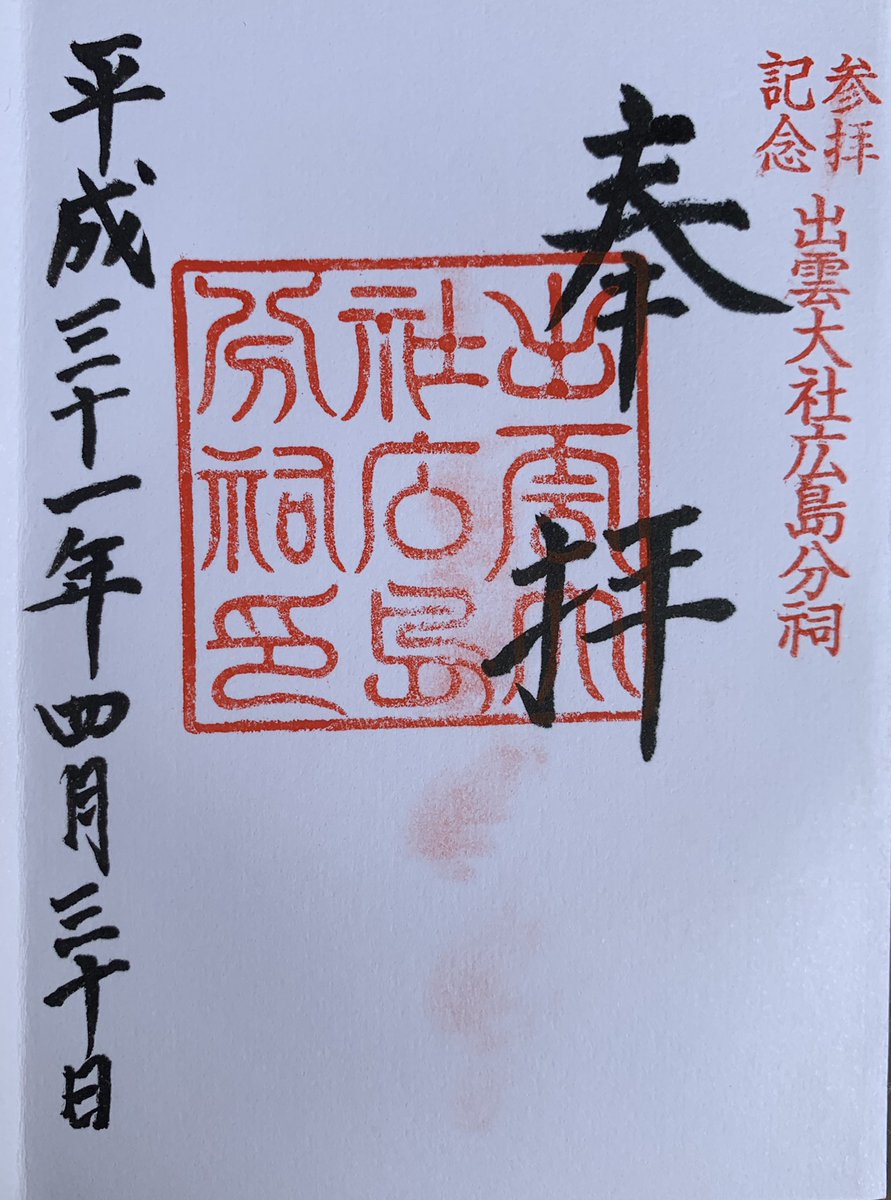 参拝
記念
出雲大社広島分祠
奉拝
出雲大
社広島
分祠印
平成三十一年四月三十日